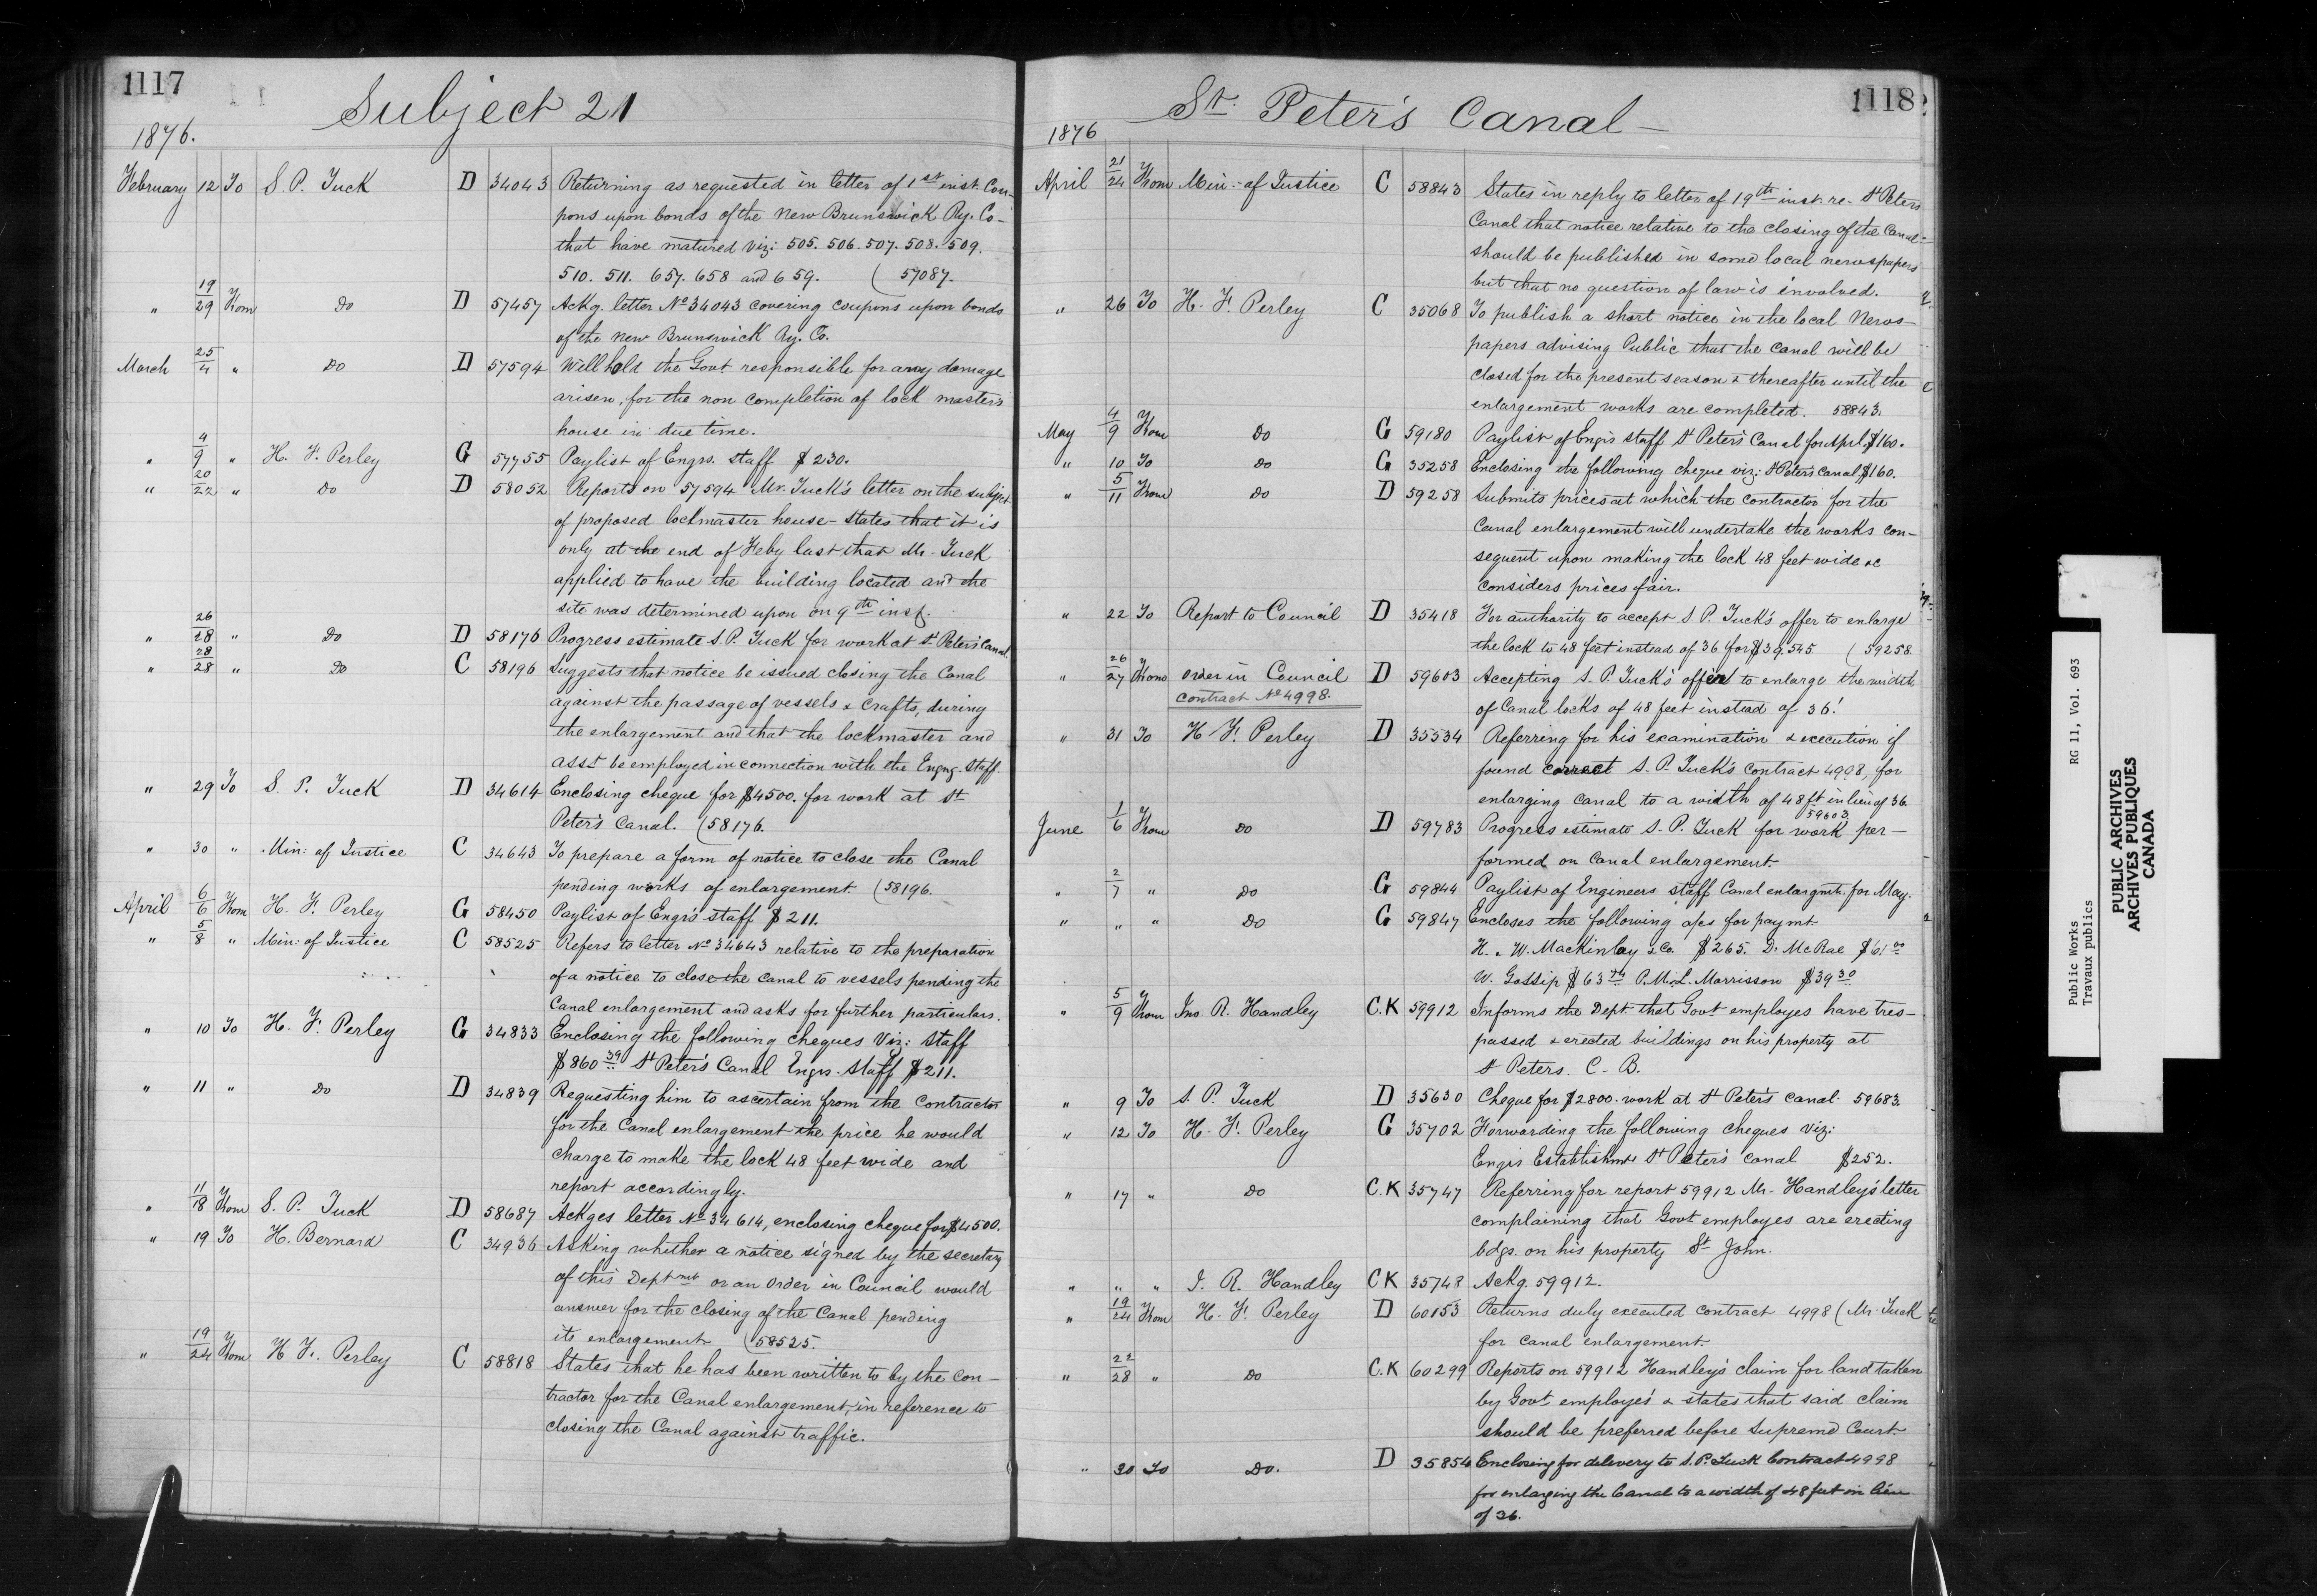 1117
Subject 21
1876.
February 12 To S. P. Tuck D 34043 Returning as requested in letter of 1st inst. Cou-
pons upon bonds of the New Brunswick Ry. Co-
that have matured viz: 505. 506. 507. 508. 509.
510. 511. 657. 658 and 659. (57087.
" 19/29 From Do D 57457 Ackg. letter No 34043 covering coupons upon bonds
of the New Brunswick Ry. Co.
March 25/4 " Do D 57594 Will hold the Govt responsible for any damage
arisen, for the non completion of lock masters
house in due time.
" 4/9 " H. F. Perley G 57755 Paylist of Engrs. Staff $230.
" 20/22 " Do D 58052 Reports on 57594 Mr. Tuck's letter on the subject
of proposed lockmaster house - states that it is
only at the end of Feby last that Mr. Tuck
applied to have the building located and the
site was determined upon on 9th inst.
" 26/28 " Do D 58176 Progress estimate S. P. Tuck for work at St Peter's Canal.
" 28/28 " Do C 58196 Suggests that notice be issued closing the Canal
against the passage of vessels & crafts, during
the enlargement and that the lockmaster and
asst be employed in connection with the Engng. Staff.
" 29 To S. P. Tuck D 34614 Enclosing cheque for $4500. for work at St
Peter's Canal. (58176.
" 30 " Min: of Justice C 34643 To prepare a form of notice to close the Canal
pending works of enlargement (58196.
April 6/6 From H. F. Perley G 58450 Paylist of Engr's staff $211.
" 5/8 " Min: of Justice C 58525 Refers to letter No 34643 relative to the preparation
of a notice to close the canal to vessels pending the
Canal enlargement and asks for further particulars.
" 10 To H. F. Perley G 34833 Enclosing the following cheques Viz: Staff
$860 39 St Peter's Canal Engrs. Staff $211.
" 11 " Do D 34839 Requesting him to ascertain from the Contractor
for the Canal enlargement the price he would
charge to make the lock 48 feet wide and
report accordingly.
" 11/18 From S. P. Tuck D 58687 Ackges letter No 34614, enclosing cheque for $4500.
" 19 To H. Bernard C 34936 Asking whether a notice signed by the secretary
of this Deptmt or an Order in Council would
answer for the closing of the Canal pending
its enlargement (58525.
" 19/24 From H. F. Perley C 58818 States that he has been written to by the Con-
tractor for the Canal enlargement, in reference to
closing the Canal against traffic.
1118
St. Peter's Canal-
1876
April 21/24 From Min:- of Justice C 58843 States in reply to letter of 19th inst. re- St Peters
Canal that notice relative to the closing of the Canal
should be published in some local newspapers
but that no question of law is involved.
" 26 To H. F. Perley C 35068 To publish a short notice in the local News-
papers advising Public that the Canal will be
closed for the present season & thereafter until the
enlargement works are completed. 58843.
May 4/9 From Do G 59180 Paylist of Engr's staff St Peter's Canal for Apl. $160.
" 10 To Do G 35258 Enclosing the following cheque viz: St Peters Canal $160.
" 5/11 From Do D 59258 Submits prices at which the contractor for the
Canal enlargement will undertake the works con-
sequent upon making the lock 48 feet wide &c
considers prices fair.
" 22 To Report to Council D 35418 For authority to accept S. P. Tuck's offer to enlarge
the lock to 48 feet instead of 36 for $39,545 (59258
" 26/27 From Order in Council D 59603 Accepting S. P. Tuck's offer to enlarge the width
Contract No 4998.
of Canal locks of 48 feet instead of 36!
" 31 To H. F. Perley D 35534 Referring for his examination & execution if
found correct S. P. Tuck's contract 4998, for
enlarging canal to a width of 48 ft in lieu of 36.
59603.
June 1/6 From Do D 59783 Progress estimate S. P. Tuck for work per-
formed on Canal enlargement
" 2/7 " Do G 59844 Paylist of Engineers staff Canal enlargmt. for May.
" " " Do G 59847 Encloses the following a/cs for paymt.
H. & W. Mackinlay & Co. $265. D. McRae $61 00
W. Gossip $63 P. M. L. Morrisson $39 30
" 5/9 From Jno. R. Handley C.K 59912 Informs the Dept. that Govt employes have tres-
passed & erected buildings on his property at
St Peters. C. B.
" 9 To S. P. Tuck D 35630 Cheque for $2800. work at St Peter's Canal. 59683.
" 12 To H. F. Perley G 35702 Forwarding the following cheques viz:
Engrs Establishmt St Peter's Canal $252.
" 17 " Do C.K 35747 Referring for report 59912 Mr. Handley's letter
complaining that Govt employes are erecting
bdgs. on his property St John.
" " " J. R. Handley CK 35748 Ackg. 59912.
" 19/24 From H. F. Perley D 60153 Returns duly executed contract 4998 (Mr. Tuck
for canal enlargement.
" 22/28 " Do C.K 60299 Reports on 59912 Handley's claim for land taken
by Govt employes & states that said claim
should be preferred before Supreme Court
" 30 To Do. D 35854 Enclosing for delivery to S. P. Tuck Contract 4998
for enlarging the Canal to a width of 48 feet in lieu
of 36.
Public Works RG 11, Vol. 693
Travaux publics
PUBLIC ARCHIVES
ARCHIVES PUBLIQUES
CANADA